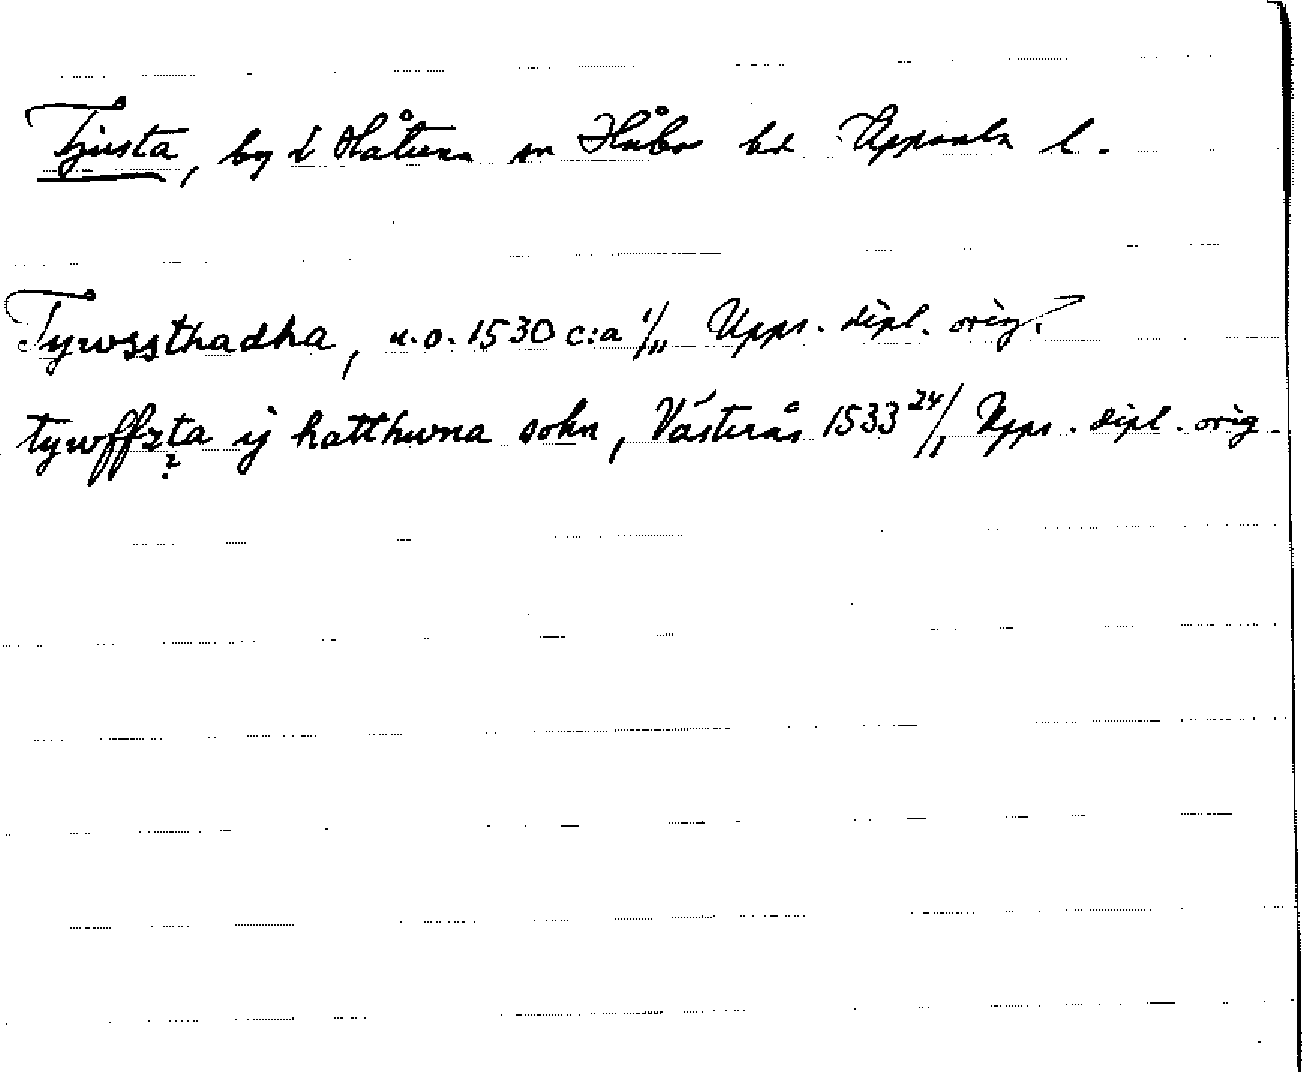 Tjusta, by i Håtuna sn Håbo hd Uppsala l.
Tywssthadha, u.o. 1530 c:a 1/11 Upps. dipl. orig.
tywffzta ij hatthwna sokn, Västerås 1533 24/1 Upps. dipl. orig.
?